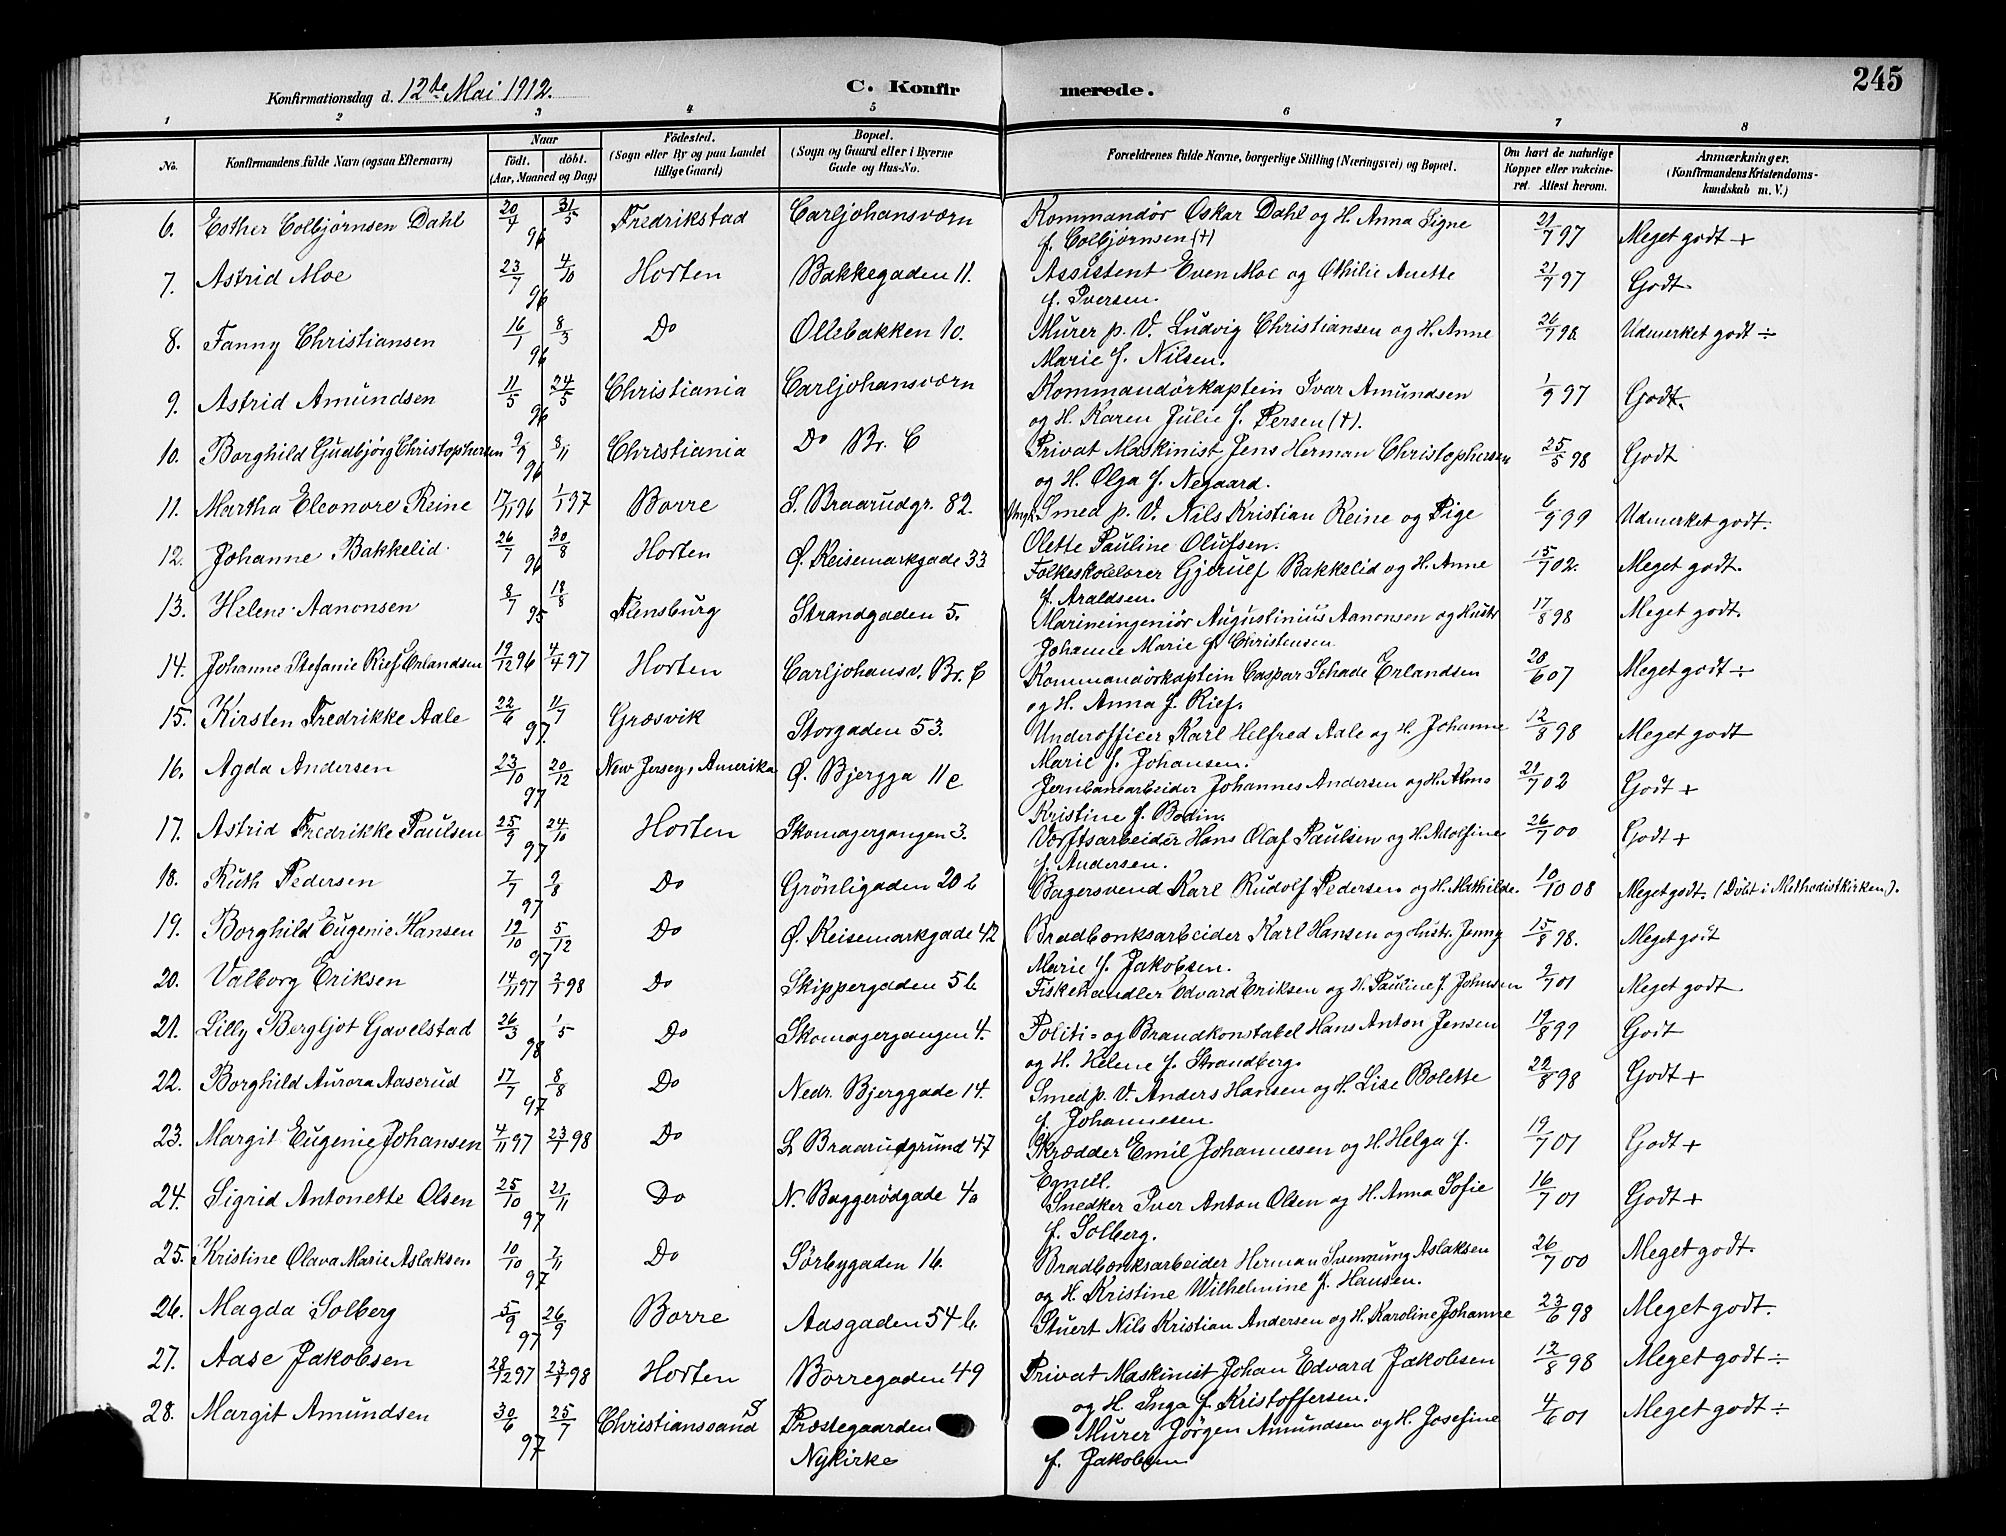 245
Konfirmationsdag d. 12te Mai 1912.
C. Konfirmerede.
1 2 3 4 5 6 7 8
No. Konfirmandens fulde Navn (ogsaa Efternavn) Naar født. døbt. (Aar, Maaned og Dag) Fødested. (Sogn eller By og paa Landet tillige Gaard) Bopæl. (Sogn og Gaard eller i Byerne Gade og Hus-No. Forældrenes fulde Navne, borgerlige Stilling (Næringsvei) og Bopæl. Om havt de naturlige Kopper eller vaccineret. Attest herom. Anmærkninger. (Konfirmandens Kristendomskundskab m. V.)
6. Esther Colbjørnsen Dahl 20/4 96 31/5 Fredrikstad Carljohansværn Kommandør Oskar Dahl og H. Anna Signe 21/7 97 Meget godt +
f. Colbjørnsen (+)
7. Astrid Moe 23/7 96 4/10 Horten Bakkegaden 11. Assistent Even Moe og Othilie Anette 21/7 97 Godt.
f. Iversen.
8. Fanny Christiansen 16/1 96 8/3 Do Ollebakken 10. Murer p. V. Ludvig Christiansen og H. Anne 26/7 98. Udmerket godt ÷
Marie f. Nilsen.
9. Astrid Amundsen 11/5 96 24/5 Christiania Carljohansværn Kommandørkaptein Ivar Amundsen 1/9 97 Godt.
og H. Karen Julie f. Persen (+).
10. Borghild Gudbjørg Christophersen 9/9 96 8/11 Christiania Do Br. C Privat Maskinist Jens Herman Christophersen 25/5 98 Godt
og H. Olga f. Negaard.
11. Martha Eleonore Reine 17/11 96 1/1 97 Borre S. Braarudgr. 82. Ungk. Smed p. V. Nils Kristian Reine og Pige 6/9 99 Udmerket godt.
Olette Pauline Olufsen.
12. Johanne Bakkelid. 26/7 96 30/8 Horten Ø. Keisemarkgade 33 Folkeskolelærer Gjerulf Bakkelid og H. Anne 15/7 02. Meget godt.
f. Araldsen.
13. Helene Aanonsen 8/7 95 18/8 Flensburg Strandgaden 5. Marineingeniør Augustinius Aanonsen og Hustr 17/8 98 Meget godt.
Johanne Marie f. Christensen
14. Johanne Stefanie Rief Erlandsen 19/12 96 4/4 97 Horten Carljohansv. Br. C Kommandørkaptein Caspar Schade Erlandsen 20/6 07 Meget godt ÷
og H. Anna f. Rief.
15. Kirsten Fredrikke Aale 22/6 97. 11/7 Græsvik Storgaden 53. Underofficer Karl Helfred Aale og H. Johanne 12/8 98 Meget godt
Marie f. Johansen.
16. Agda Andersen 23/10 97 20/12 New Jersey, Amerika Ø. Bjergga 11c Jernbanearbeider Johannes Andersen og H. Alma 21/7 02 Godt +
Kristine f. Bodin.
17. Astrid Fredrikke Paulsen 25/9 97 24/10 Horten Skomagergangen 3. Værftsarbeider Hans Olaf Paulsen og H. Adolfine 26/7 00 Godt +
f. Andersen.
18. Ruth Pedersen 7/7 97 9/8 Do Grønligaden 20 b Bagersvend Karl Rudolf Pedersen og H. Mathilde. 10/10 08 Meget godt. (Døbt i Methodistkirken).
19. Borghild Eugenie Hansen 19/10 97 5/12 Do Ø. Keisemarkgade 42 Bradbænksarbeider Karl Hansen og Hustr. Jenny 15/8 98. Meget godt
Marie f. Jakobsen.
20. Valborg Eriksen 14/11 97 2/1 98 Do Skippergaden 5 b Fiskehandler Edvard Eriksen og H. Pauline f. Johnsen 9/7 01 Meget godt
21. Lilly Bergljot Gavelstad 26/3 98 1/5 Do Skomagergangen 4. Politi- og Brandkonstabel Hans Anton Jensen 19/8 99 Godt
og H. Helene f. Strandberg.
22. Borghild Aurora Aaserud 17/7 97 8/8 Do Nedr. Bjerggade 14. Smed p. V. Anders Hansen og H. Lise Bolette 22/8 98 Godt +
f. Johannesen.
23. Margit Eugenie Johansen 4/11 97 23/1 98 Do S. Braarudgrund 47 Skrædder Emil Johannesen og H. Helga f. 19/7 01 Godt +
Egnell.
24. Sigrid Antonette Olsen 25/10 97 21/11 Do N. Baggerødgade 4a Snedker Iver Anton Olsen og H. Anna Sofie 16/7 01 Godt +
f. Solberg.
25. Kristine Olava Marie Aslaksen. 10/10 97 7/11 Do Sørbygaden 16. Bradbænksarbeider Herman Svennung Aslaksen 26/7 00 Meget godt.
og H. Kristine Wilhelmine f. Hansen.
26. Magda Solberg 5/9 97 26/9 Borre Aasgaden 54 b. Stuert Nils Kristian Andersen og H. Karoline Johanne 23/6 98 Meget godt.
27. Aase Jakobsen 28/12 97 23/1 98 Horten Borregaden 49 Privat Maskinist Johan Edvard Jakobsen 12/8 98 Meget godt ÷
og H. Inga f. Kristoffersen.
28. Margit Amundsen 30/6 97 25/7 Christianssand S Præstegaarden Murer Jørgen Amundsen og H. Josefine 4/6 01 Meget godt ÷
Nykirke f. Jakobsen